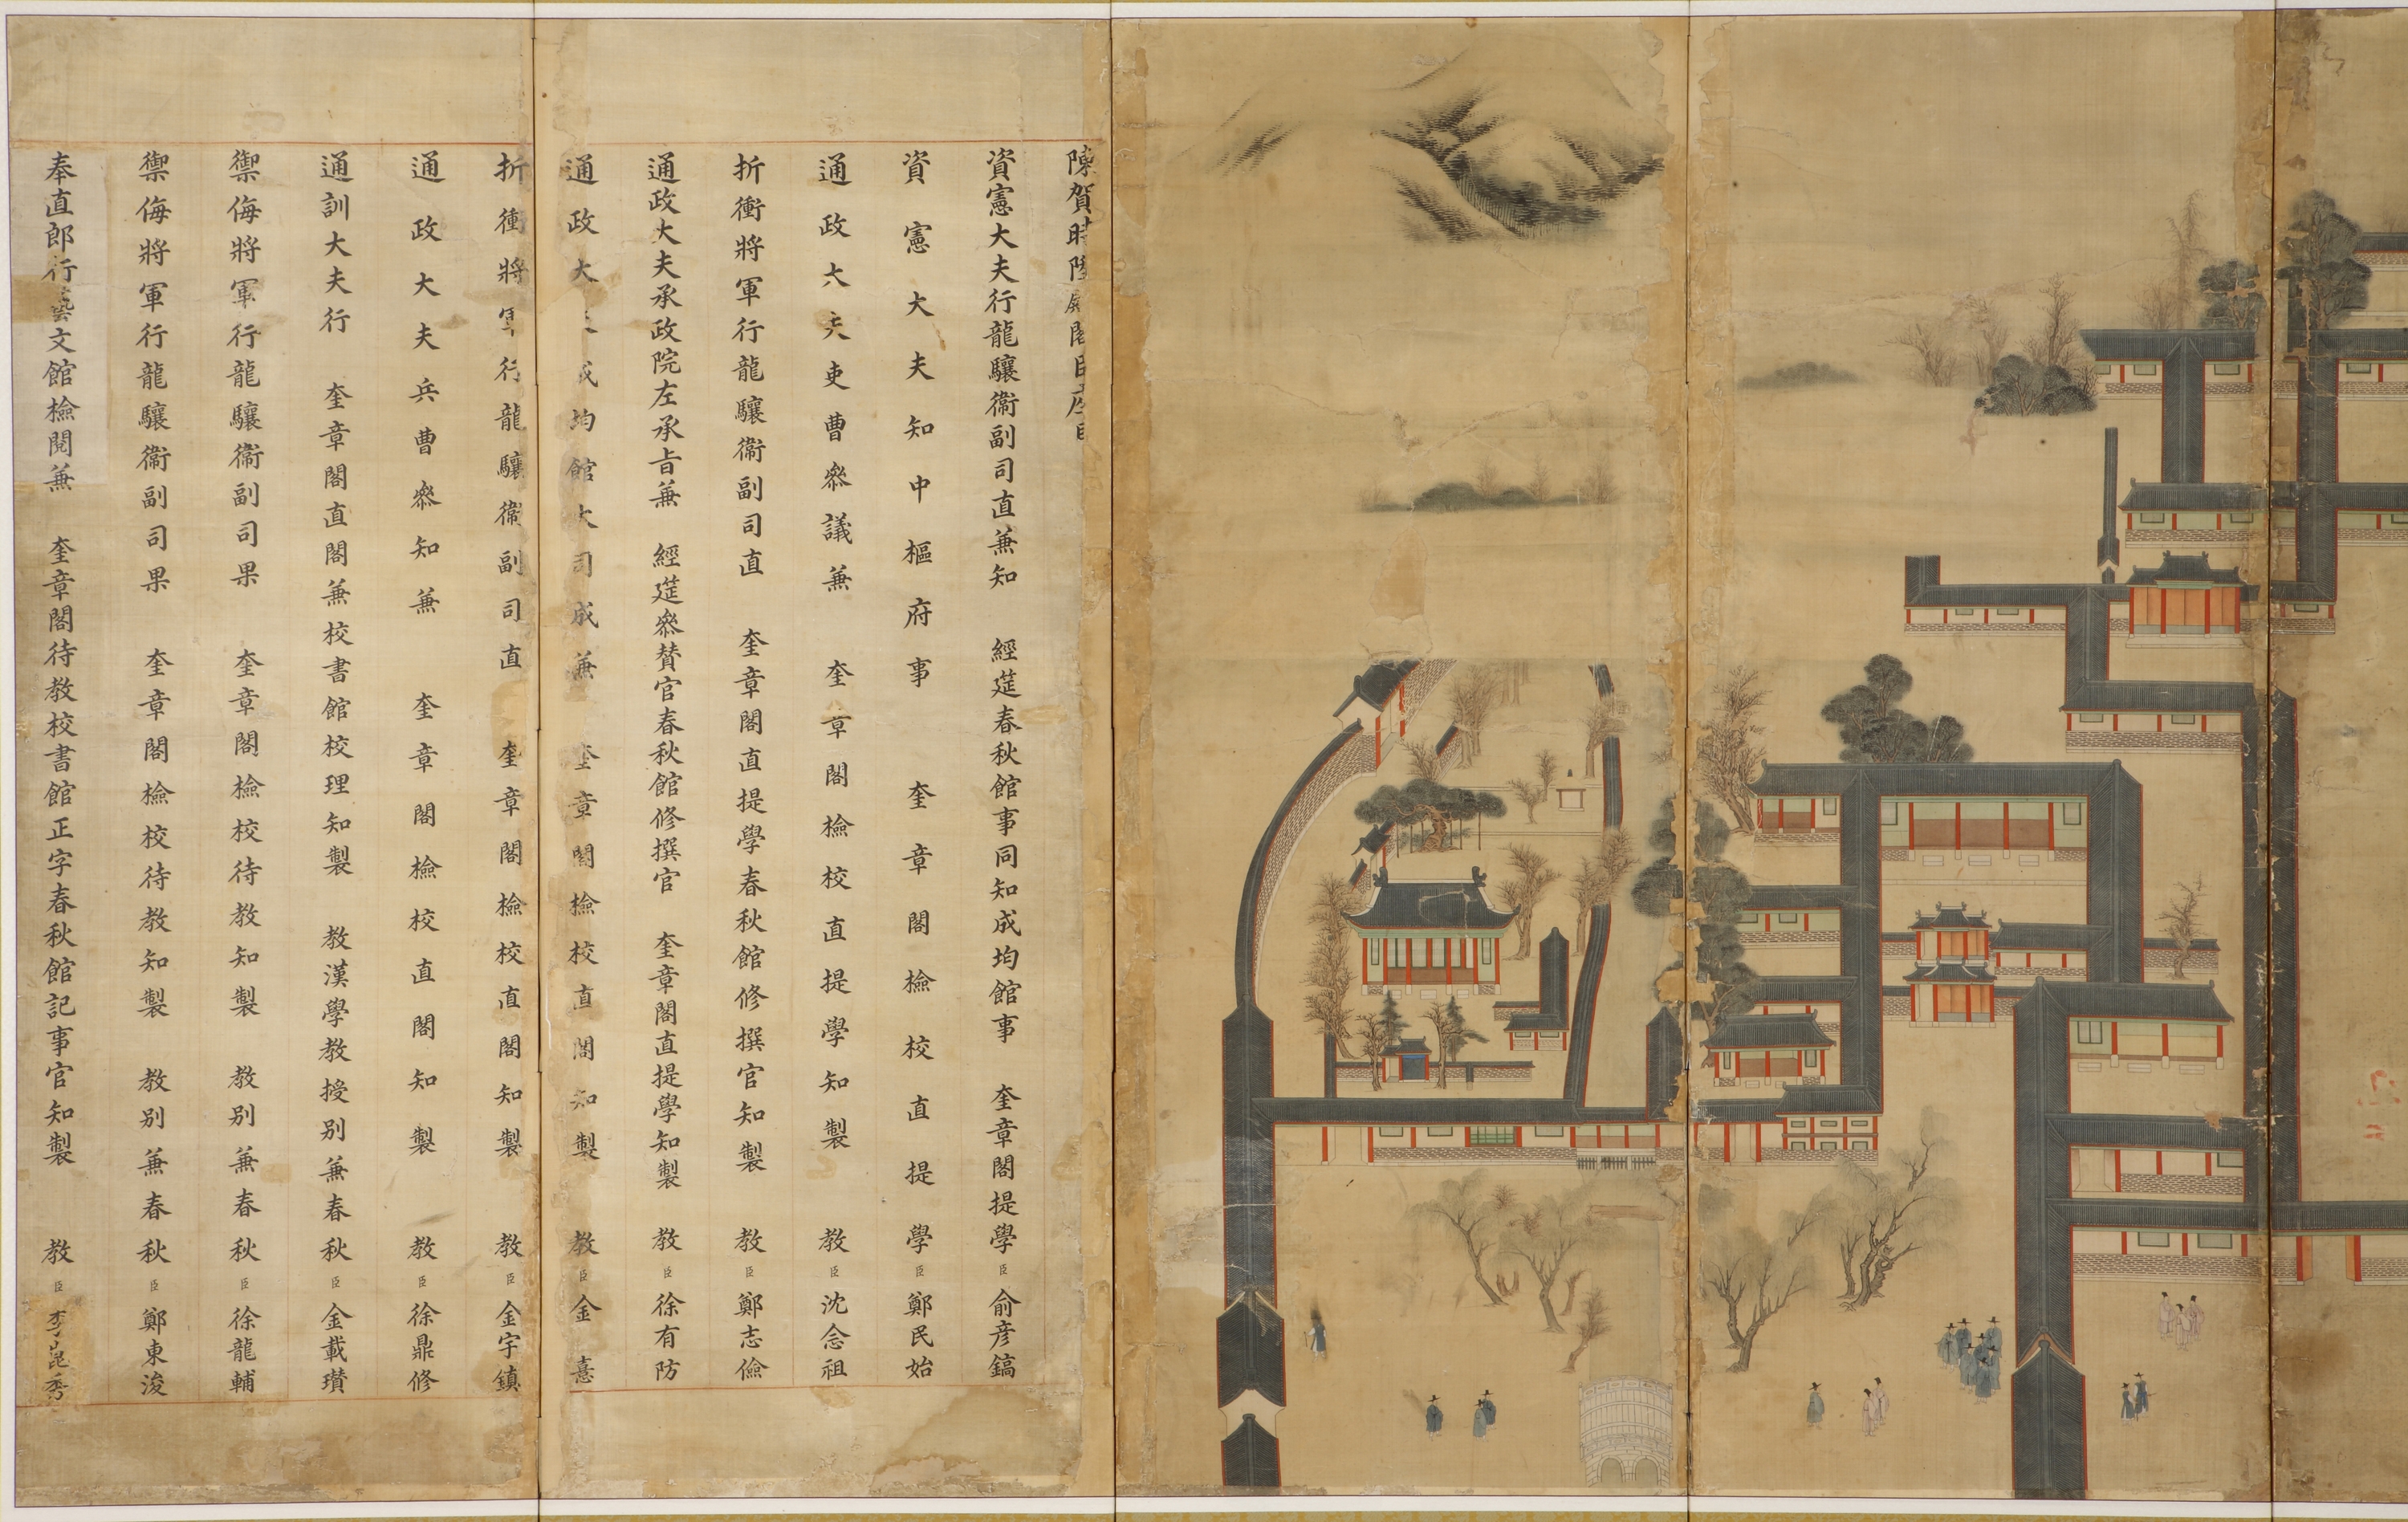 陳賀時陞殿閣臣座目
資憲大夫行龍驤衛副司直兼知 經筵春秋館事同知成均館事 奎章閣提學臣俞彦鎬
資憲大夫知中樞府事 奎章閣檢校直提學臣鄭民始
通政大夫吏曹叅議兼 奎章閣檢校直提學知製 教臣沈念祖
折衝將軍行龍驤衛副司直 奎章閣直提學春秋館修撰官知製 教臣鄭志儉
通政大夫承政院左承旨兼 經筵叅賛官春秋館修撰官 奎章閣直提學知製 教臣徐有防
通政大夫成均館大司成兼 奎章閣檢校直閣知製 教臣金憙
折衝將軍行龍驤衛副司直 奎章閣檢校直閣知製 教臣金宇鎮
通政大夫兵曹叅知兼 奎章閣檢校直閣知製 教臣徐鼎修
通訓大夫行 奎章閣直閣兼校書館校理知製 教漢學教授別兼春秋臣金載瓚
禦侮將軍行龍驤衛副司果 奎章閣檢校待教知製 教別兼春秋臣徐龍輔
禦侮將軍行龍驤衛副司果 奎章閣檢校待教知製 教別兼春秋臣鄭東浚
奉直郎行藝文館檢閱兼 奎章閣待教校書館正字春秋館記事官知製 教臣李崑秀